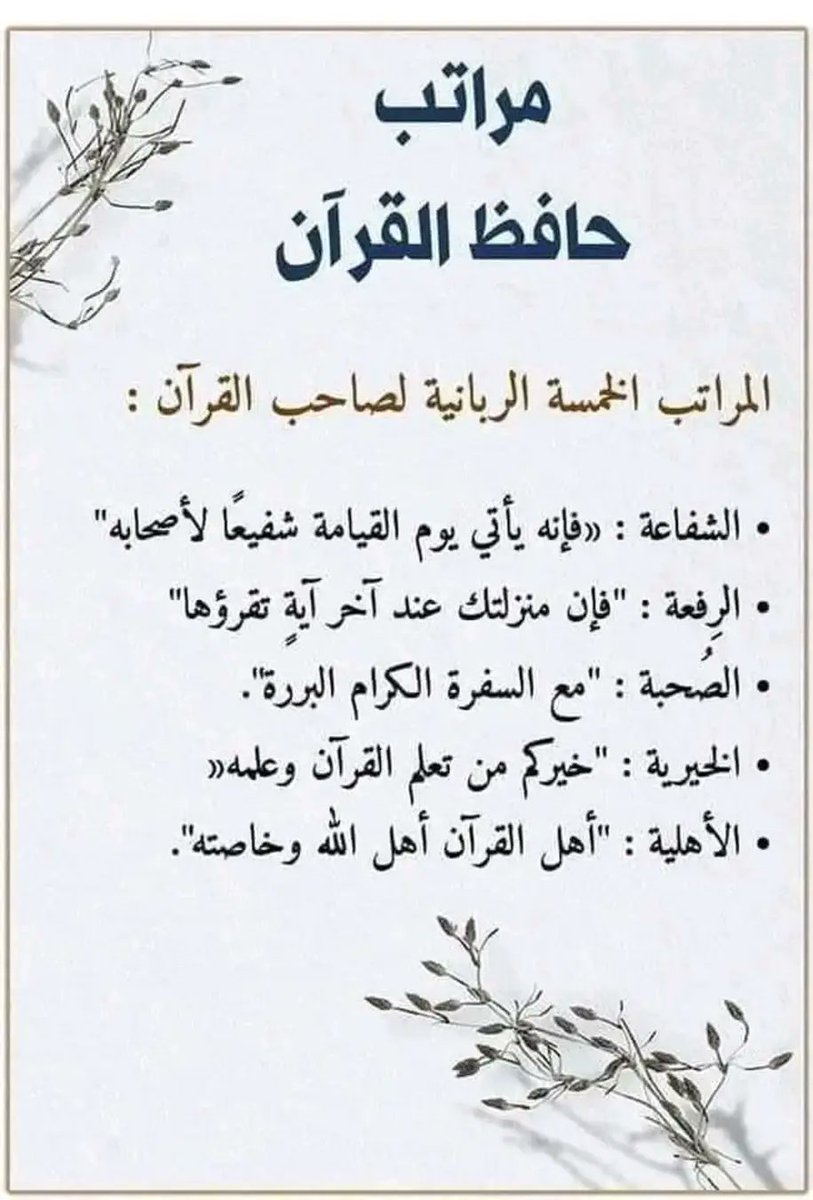 مراتب
حافظ القرآن
المراتب الخمسة الربانية لصاحب القرآن :
• الشفاعة : «فإنه يأتي يوم القيامة شفيعًا لأصحابه"
• الرِفعة : "فإن منزلتك عند آخر آيةٍ تقرؤها"
• الصُحبة : "مع السفرة الكرام البررة".
• الخيرية : "خيركم من تعلم القرآن وعلمه«
• الأهلية : "أهل القرآن أهل الله وخاصته".